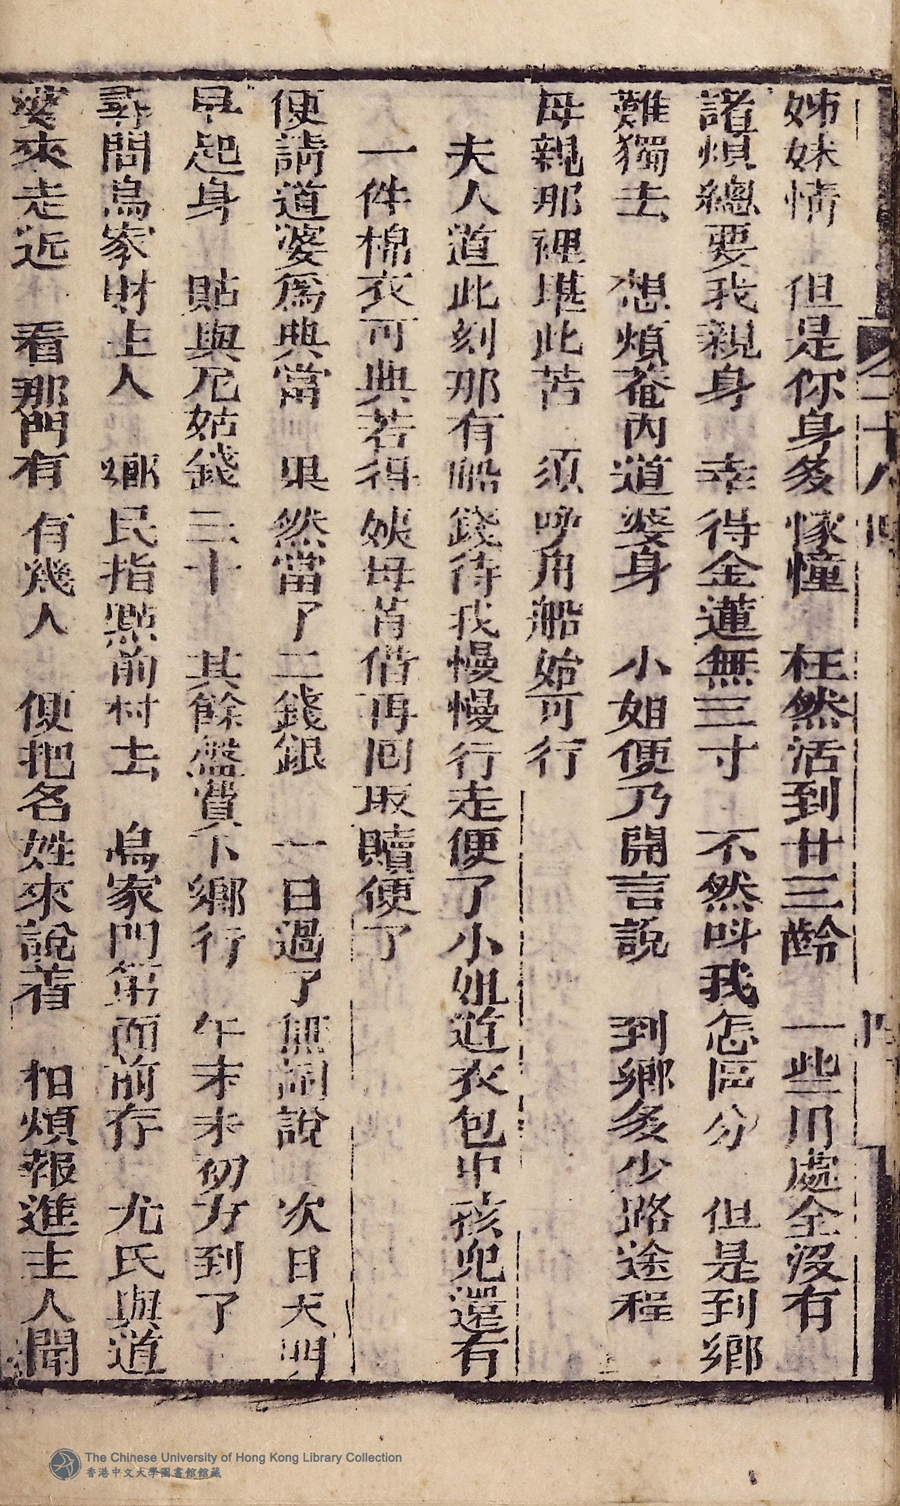 姊妹情　但是你身多悷憧　枉然活到廿三齡　一些用處全没有
諸煩總要我親身　幸得金蓮無三寸　不然呌我怎區分　但是到鄉
難獨去　想煩菴內道婆身　小姐便乃開言說　到鄉多少路途程
母親那裡堪此苦　須呼舟船始可行
夫人道此刻那有船錢待我慢慢行走便了小姐道衣包中孩兒還有
一件棉衣可典若得姨母肯借再囘取贖便了
便請道婆爲典當　果然當了二錢銀　一日過了無閒說　次日天明
早起身　貼與尼姑錢三十　其餘盤費下鄉行　午末未初方到了
尋問烏家財主人　鄉民指點前村去　烏家門第面前存　尤氏與道
婆來走近　看那門有有幾人　便把名姓來說着　相煩報進主人聞
卷二十八
四